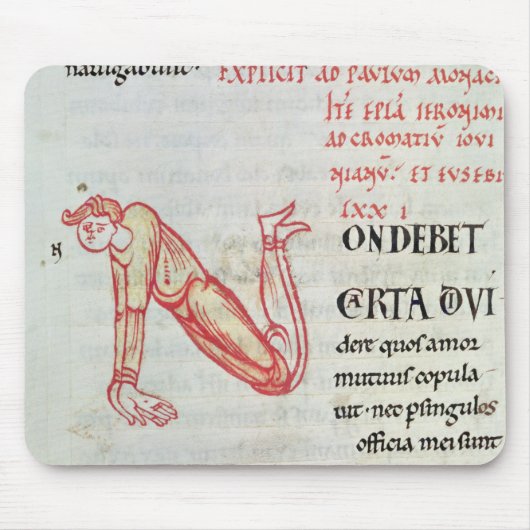 nauigabunt.
EXPLICIT AD PAULUM MONAC
ITE EPLA IERONIMI
AD CROMATIŪ IOUI
NIANŪ. ET EUSEBI
LXX I
N
ON DEBET
CARTA DIVI
dere quos amor
mutuus copula
uit · nec p singulos
officia mei sunt